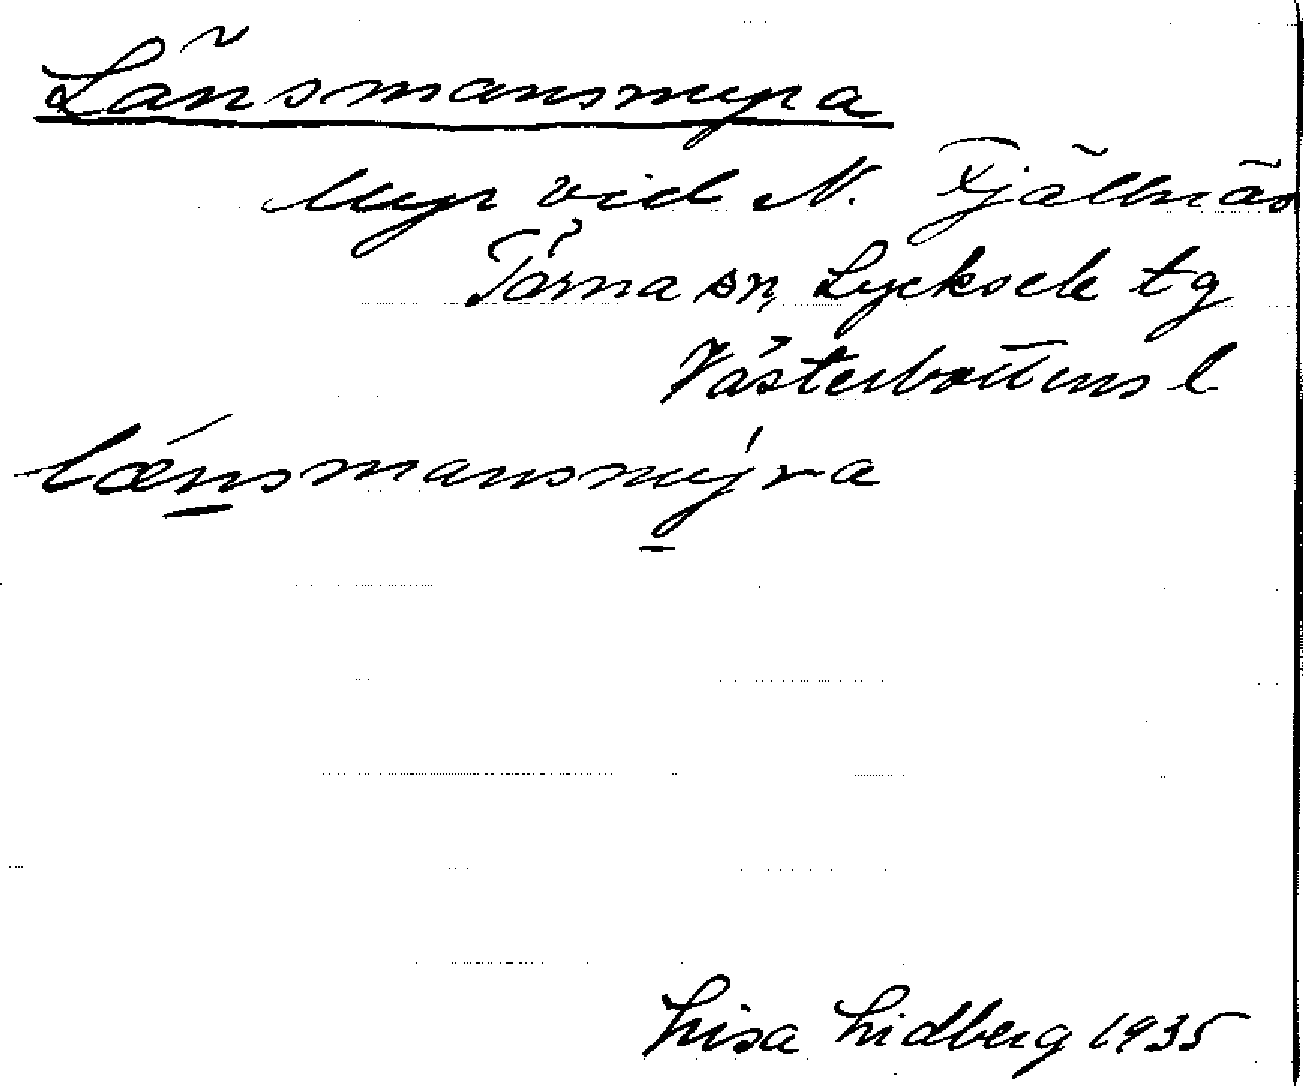 Länsmansmyra
Myr vid N. Fjällnäs
Tärna sn, Lycksele tg
Västerbottens l
lænsmansmýra
Lisa Lidberg 1935